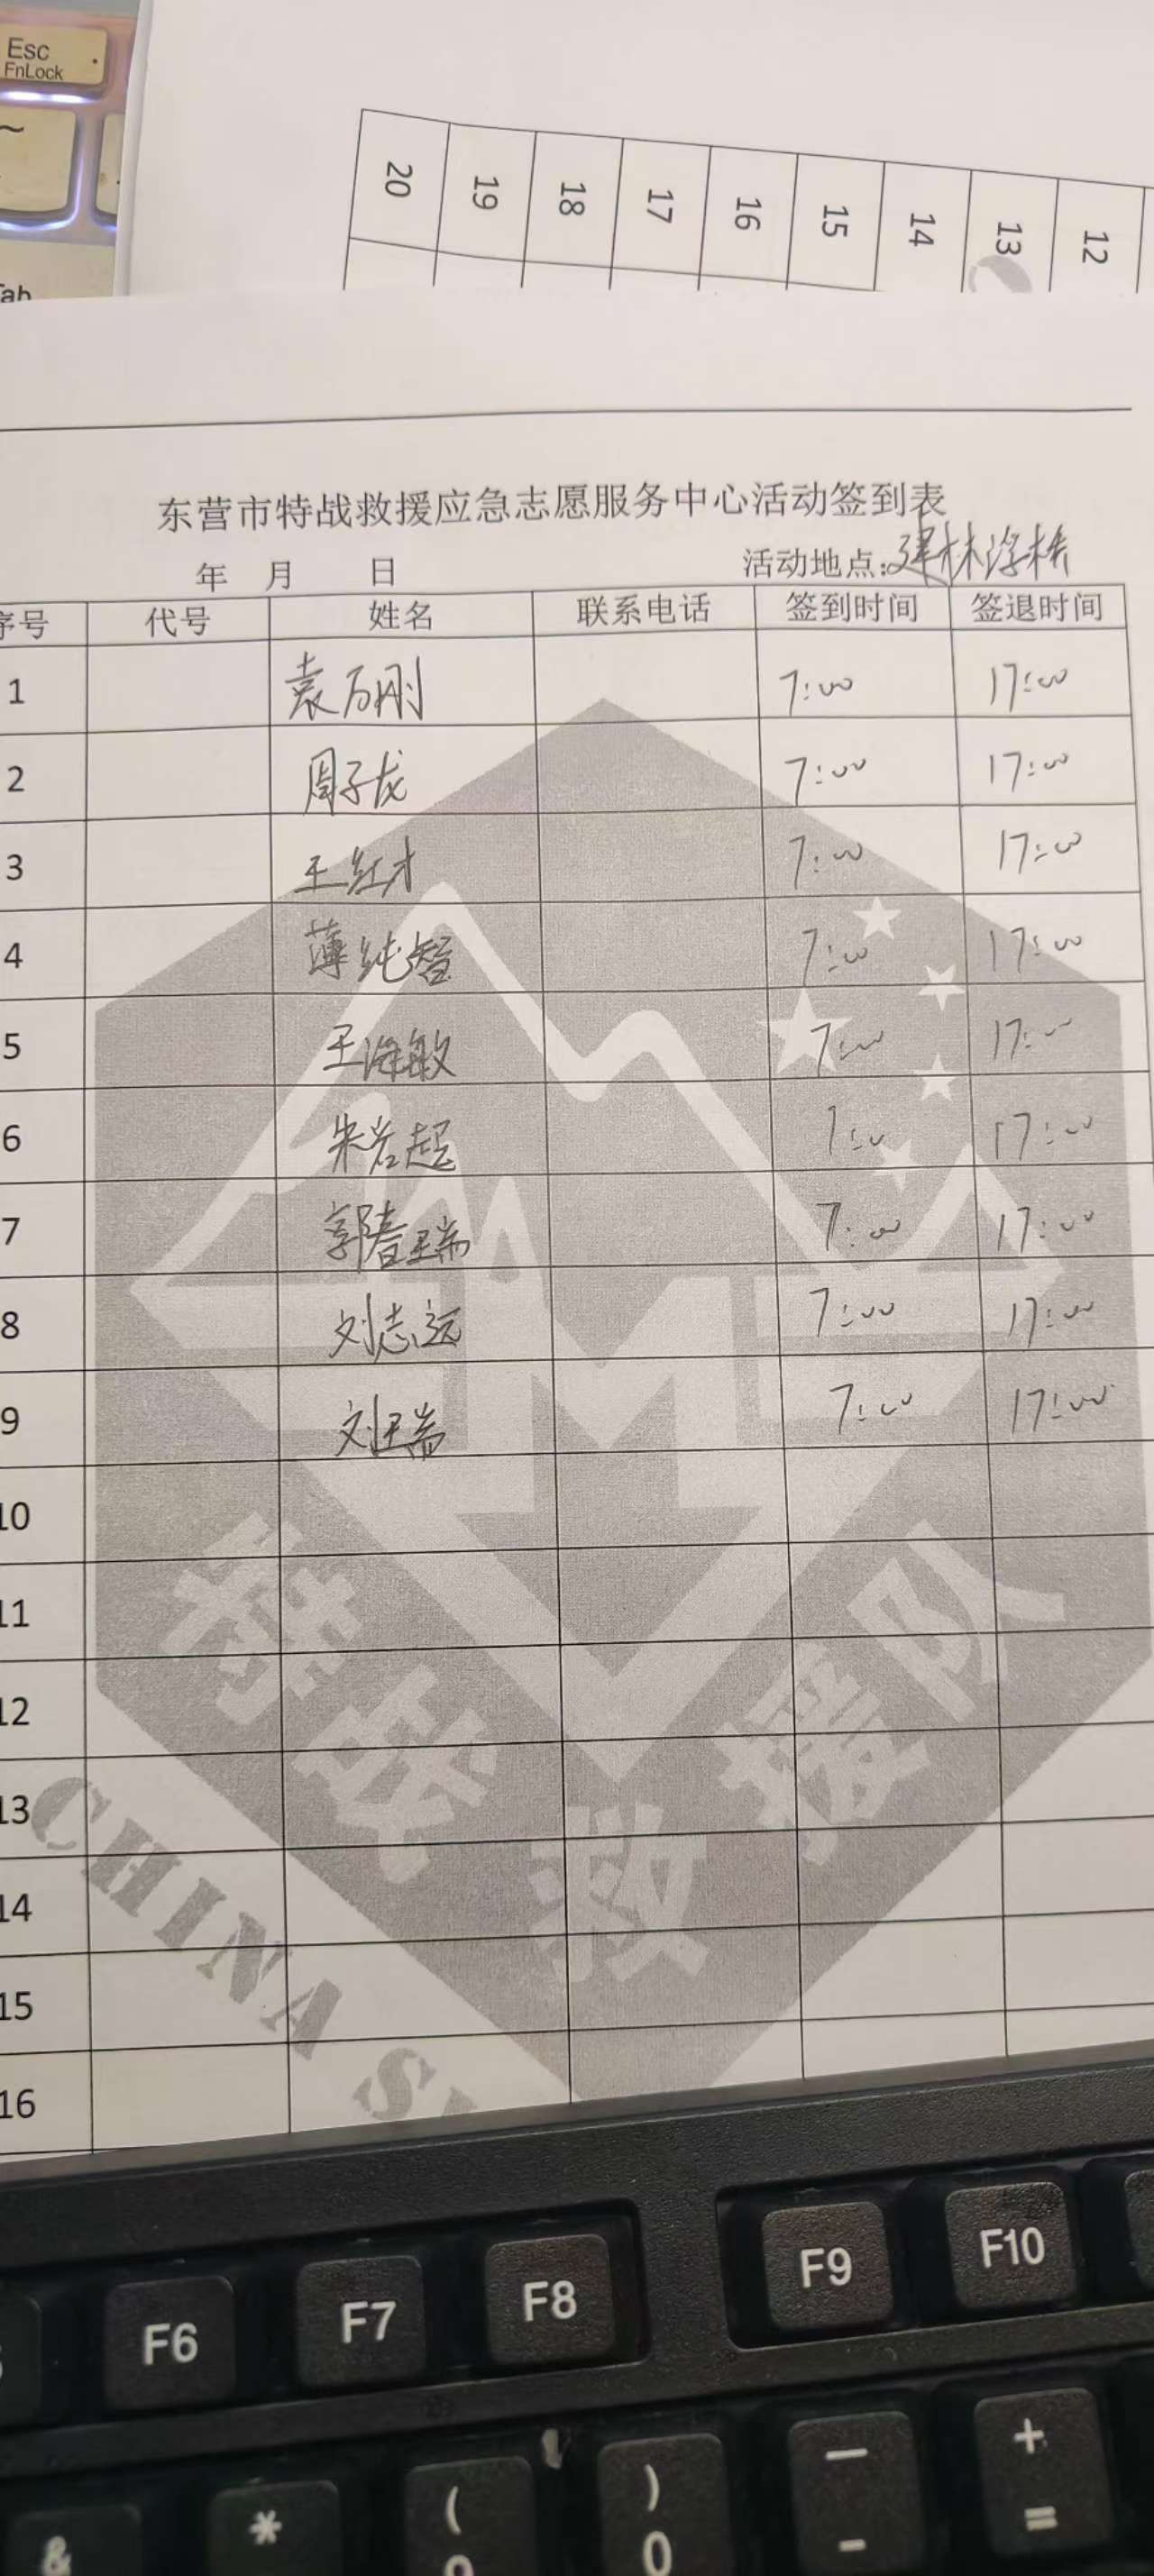 Esc
FnLock
~
Tab
20 19 18 17 16 15 14 13 12
东营市特战救援应急志愿服务中心活动签到表
年 月 日 活动地点:建林浮桥
序号 代号 姓名 联系电话 签到时间 签退时间
1 袁万刚 7:00 17:00
2 周子龙 7:00 17:00
3 王红才 7:00 17:00
4 薄纯智 7:00 17:00
5 王海敏 7:00 17:00
6 朱岩超 7:00 17:00
7 郭春瑞 7:00 17:00
8 刘志远 7:00 17:00
9 刘瑞 7:00 17:00
10
11
12
13
14
15
16
特战救援队
CHINA S
F6 F7 F8 F9 F10
& * ( 9 ) 0 — - + =